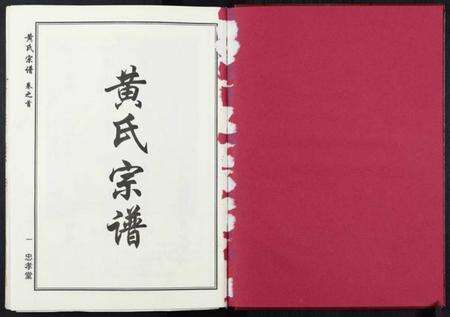 黄氏宗谱
黄氏宗谱 卷之首
一 忠孝堂